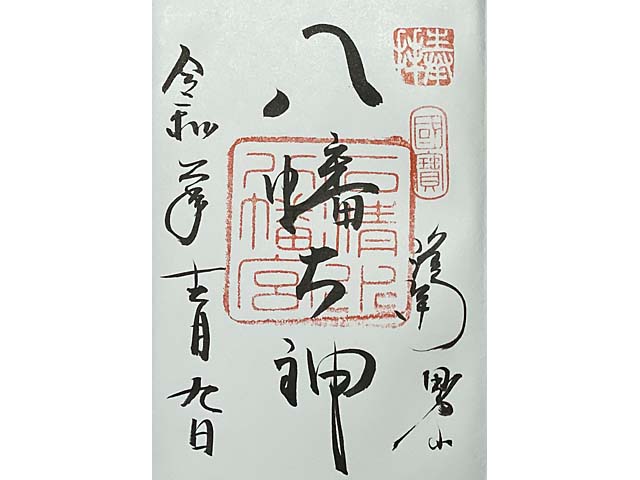 奉拝
國寶
男山
八幡大神
石清水
八幡宮
令和 年 十一月九日